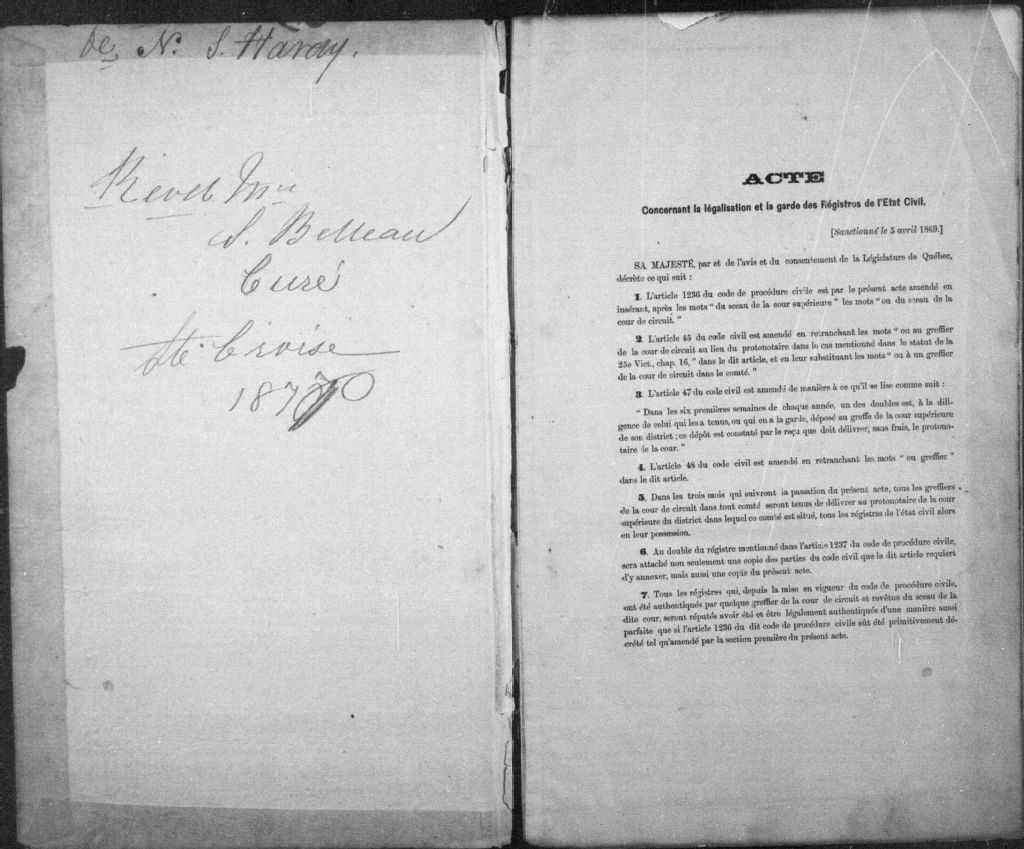 De N. S. Hardy.
Revd Mr
S. Belleau
Curé
Ste Croise
1870
ACTE
Concernant la légalisation et la garde des Régistres de l'Etat Civil.
[Sanctionné le 5 avril 1869.]
SA MAJESTÉ, par et de l'avis et du consentement de la Législature de Québec,
décrète ce qui suit :
1. L'article 1236 du code de procédure civile est par le présent acte amendé en
insérant, après les mots " du sceau de la cour supérieure " les mots " ou du sceau de la
cour de circuit. "
2. L'article 45 du code civil est amendé en retranchant les mots " ou au greffier
de la cour de circuit au lieu du protonotaire dans le cas mentionné dans le statut de la
25e Vict., chap. 16, " dans le dit article, et en leur substituant les mots " ou à un greffier
de la cour de circuit dans le comté. "
3. L'article 47 du code civil est amendé de manière à ce qu'il se lise comme suit :
" Dans les six premières semaines de chaque année, un des doubles est, à la dili-
gence de celui qui les a tenus, ou qui en a la garde, déposé au greffe de la cour supérieure
de son district ; ce dépôt est constaté par le reçu que doit délivrer, sans frais, le protono-
taire de la cour. "
4. L'article 48 du code civil est amendé en retranchant les mots " ou greffier "
dans le dit article.
5. Dans les trois mois qui suivront la passation du présent acte, tous les greffiers
de la cour de circuit dans tout comté seront tenus de délivrer au protonotaire de la cour
supérieure du district dans lequel ce comté est situé, tous les régistres de l'état civil alors
en leur possession.
6. Au double du régistre mentionné dans l'article 1237 du code de procédure civile,
sera attaché non seulement une copie des parties du code civil que le dit article requiert
d'y annexer, mais aussi une copie du présent acte.
7. Tous les régistres qui, depuis la mise en vigueur du code de procédure civile,
ont été authentiqués par quelque greffier de la cour de circuit et revêtus du sceau de la
dite cour, seront réputés avoir été et être légalement authentiqués d'une manière aussi
parfaite que si l'article 1236 du dit code de procédure civile eût été primitivement dé-
crété tel qu'amendé par la section première du présent acte.